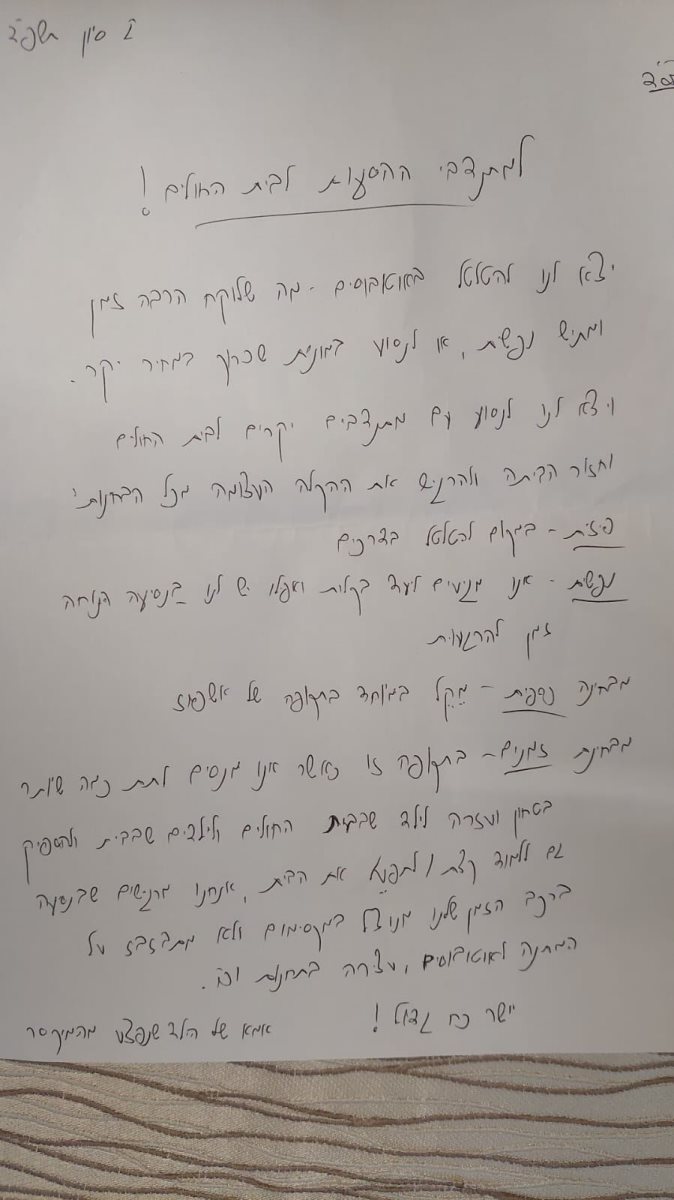 בס"ד
ז' סיון תשפ"ד
למתנדבי ההסעות לבית החולים!
יצא לנו להטלטל באוטובוסים - מה שלוקח הרבה זמן
ומתיש נפשית, או לנסוע במונית שכרוך במחיר יקר.
ויצא לנו לנסוע עם מתנדבים יקרים לבית החולים
וחזור הביתה ולהרגיש את ההקלה העצומה מכל הבחנות'
פיזית - במקום להטלטל בדרכים
נפשית - אנו מגיעים ליעד בקלות ואפילו יש לנו בנסיעה הנוחה
זמן להרגעות
מבחינה כספית - מֵקֵל במיוחד בתקופה של אשפוז
מבחינת זמנים - בתקופה זו כאשר אנו מנסים לתת כמה שיותר
בטחון ועזרה לילד שבבית החולים ולילדים שבבית ולהספיק
גם ללמוד קצת / לתפעל את הבית, אנחנו מרגישים שבנסיעה
ברכב הזמן שלנו מנוצל במקסימום ולא מתבזבז על
המתנה לאוטובוסים, עצירה בתחנות וכו'.
יישר כח גדול! אמא של הילד שנפצע מהמיקסר